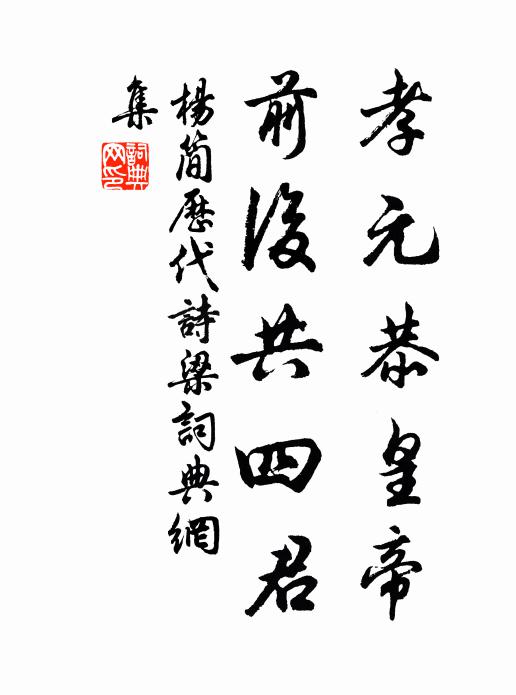 孝元恭皇帝
前後共四君
楊簡歷代詩梁詞典網
集
詞典網印